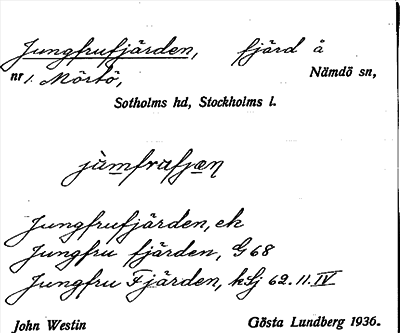 Jungfrufjärden, fjärd å
nr 1. Mörtö, Nämdö sn,
Sotholms hd, Stockholms l.
jùmfrafjæɳ
Jungfrufjärden, ek
Jungfru fjärden, G 68
Jungfru Fjärden, kSj 62.11.IV
John Westin Gösta Lundberg 1936.